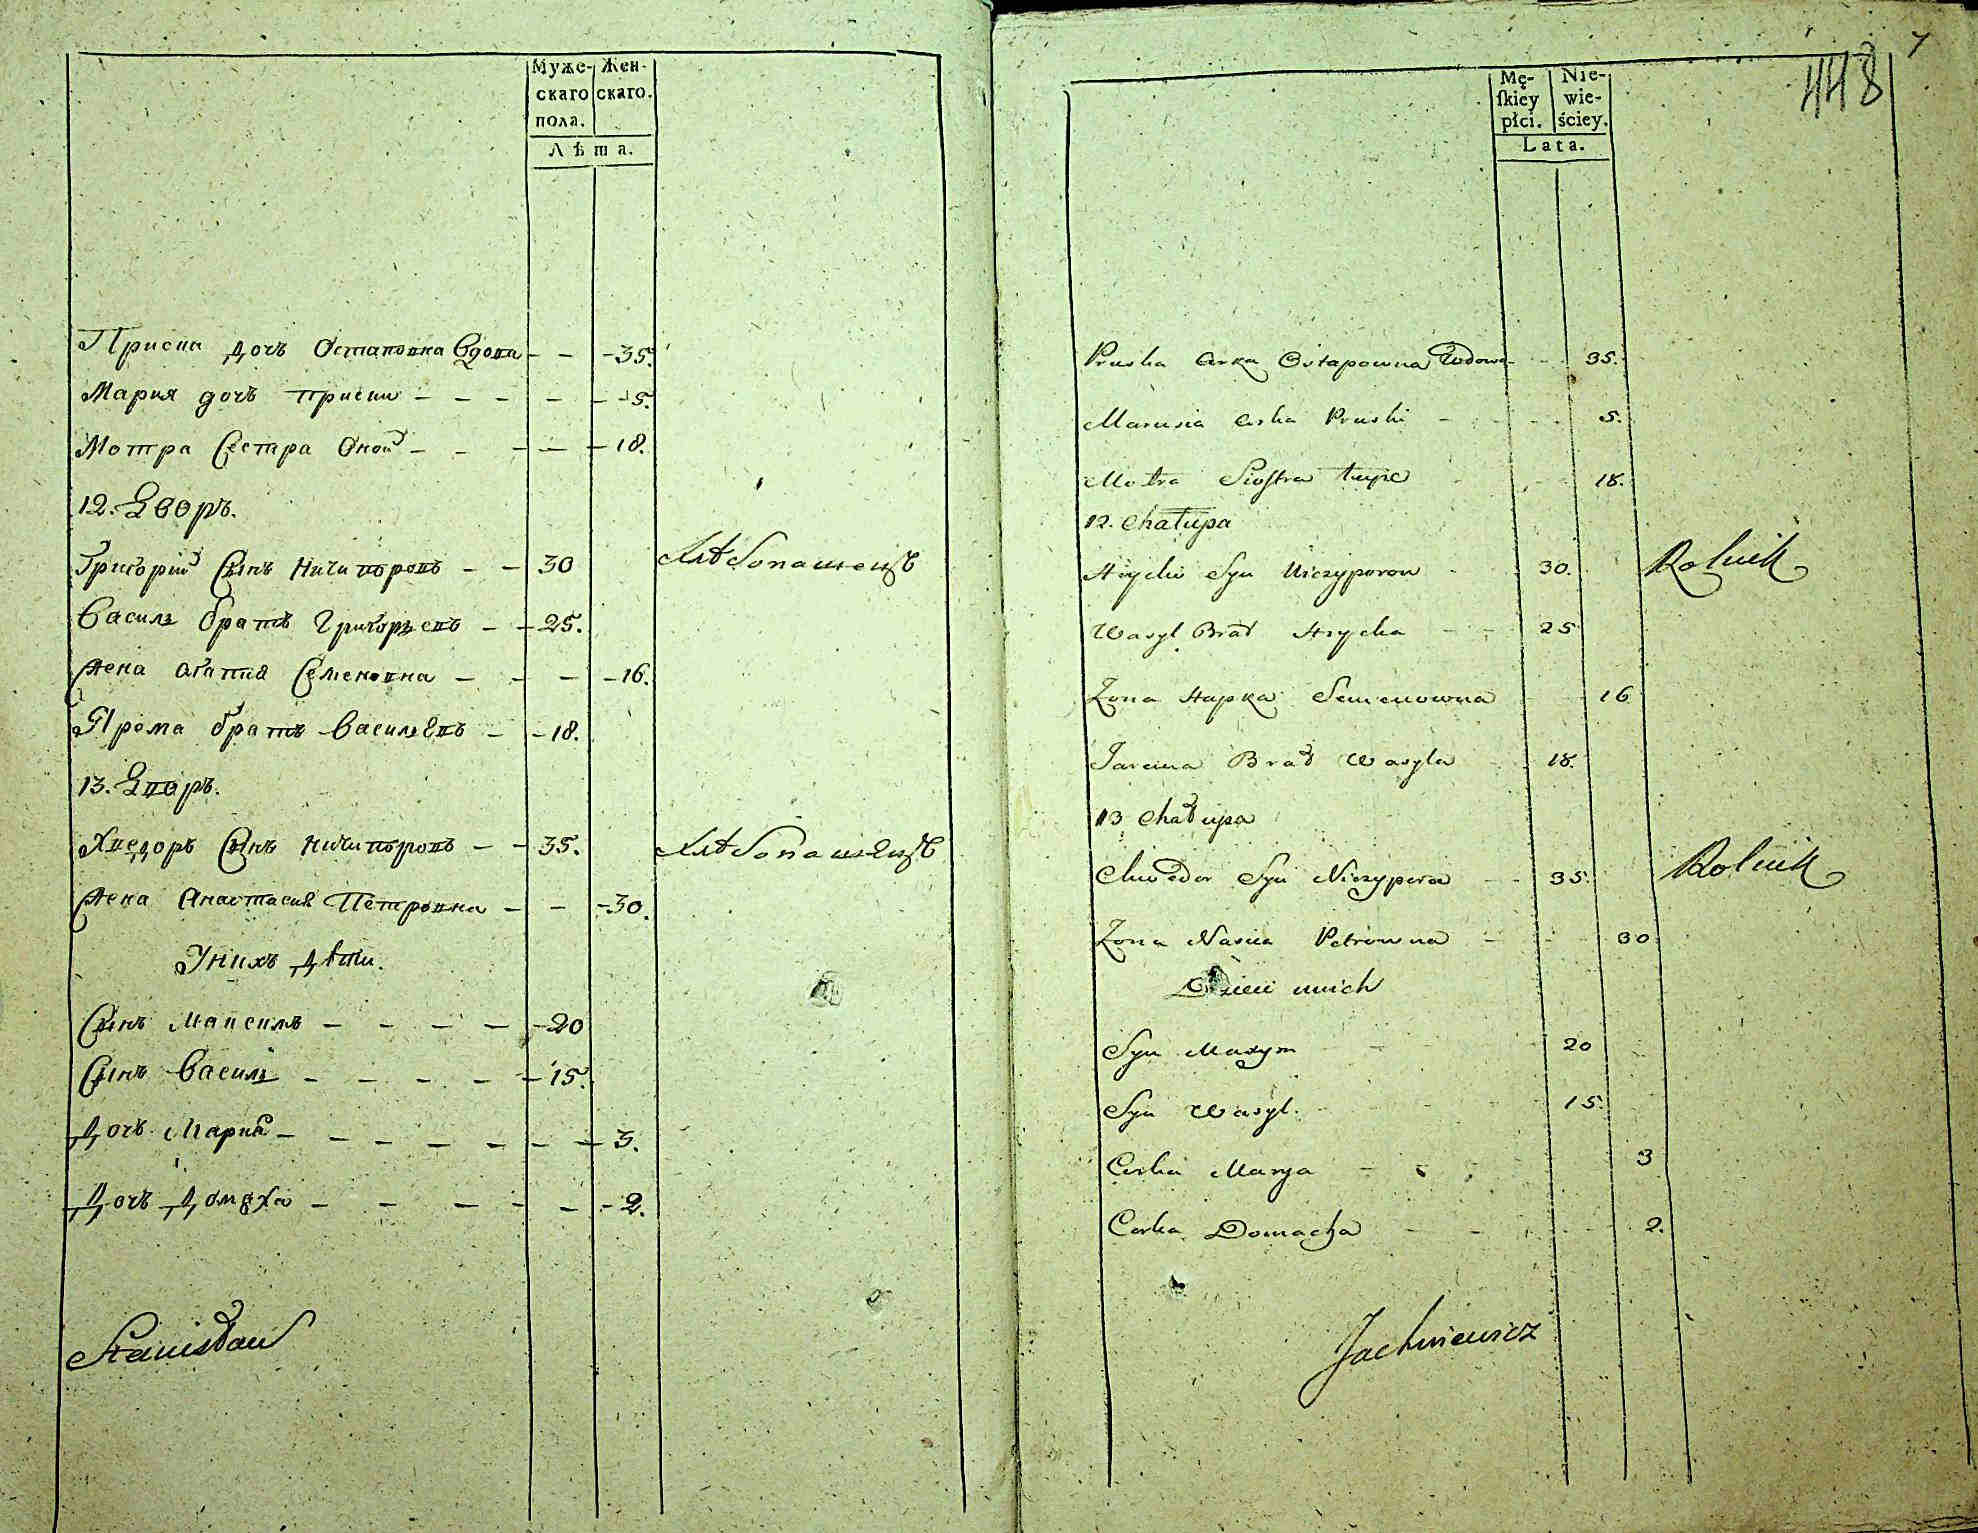 Муже- Жен-
скаго скаго.
пола.
Лѣта.
Приска дочъ Остаповна Вдова - - - 35.
Мария дочъ Приски - - - - - 5.
Мотра Сестра Оной - - - - - 18.
12. Дворъ.
Григорій Сынъ Ничипоровъ - - 30 Хлѣбопашецъ
Василь братъ Григорьевъ - - 25.
Жена Агапия Семеновна - - - - 16.
Ярома братъ Васильевъ - - 18.
13. Дворъ.
Хведоръ Сынъ Ничипоровъ - - 35. Хлѣбопашецъ
Жена Анастасия Петровна - - - 30.
У нихъ Дѣти.
Сынъ Максимъ - - - - - 20
Сынъ Василь - - - - - 15.
Дочъ Мария - - - - - - - 3.
Дочъ Домаха - - - - - - 2.
Stanisław
7
448
Mę- Nie-
ſkiey wie-
płci. ściey.
Lata.
Pruska Corka Ostapowna Wdowa - - 35.
Marusia Corka Pruski - - - 5.
Motra Siostra teyże 18.
12. Chałupa
Hrycko Syn Niczyporow 30. Rolnik
Wasyl Brat Hrycka - - 25
Zona Hapka Semenowna 16
Jarema Brat Wasyla 18.
13 Chałupa
Chwedor Syn Niczypora - - 35. Rolnik
Zona Nascia Petrowna - - 30.
Dzieci unich
Syn Maxym 20
Syn Wasyl. 15.
Corka Marya - 3
Corka Domacha - - 2.
Jachniewicz